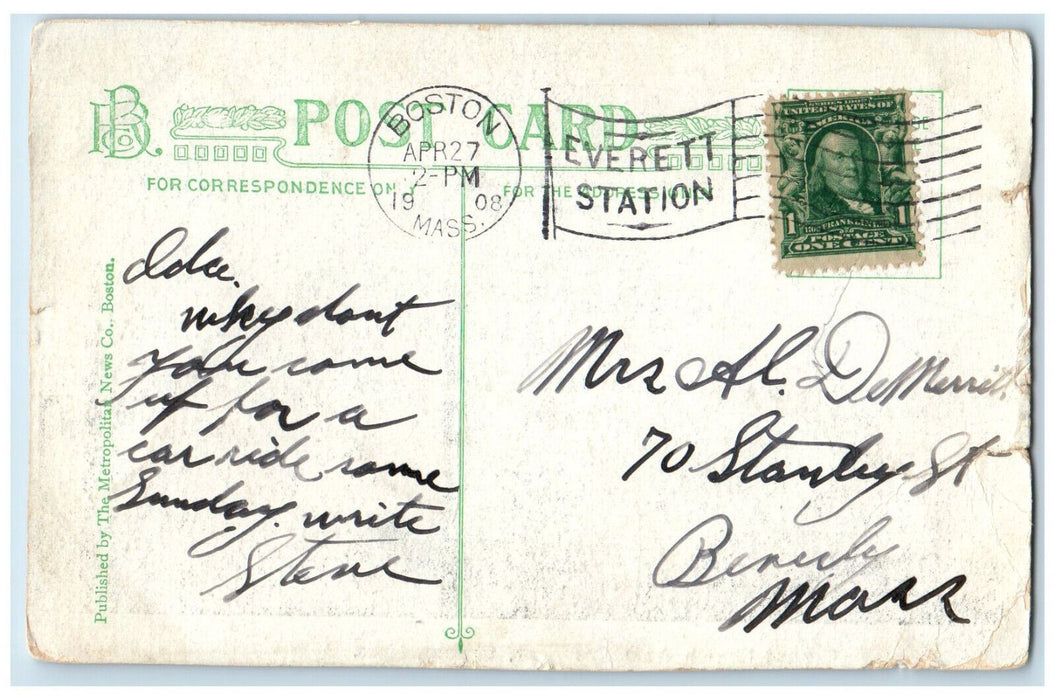 POST CARD
FOR CORRESPONDENCE ONLY
FOR THE ADDRESS ONLY
BOSTON
APR 27
2-PM
1908
MASS.
EVERETT
STATION
SERIES 1902
UNITED STATES OF
AMERICA
1 FRANKLIN 1
POSTAGE
ONE CENT
Published by The Metropolitan News Co., Boston.
Ida.
why dont
you come
up for a
car ride some
Sunday. write
Steve
Mrs Al. DeMerritt.
70 Stanley St
Beverly
Mass